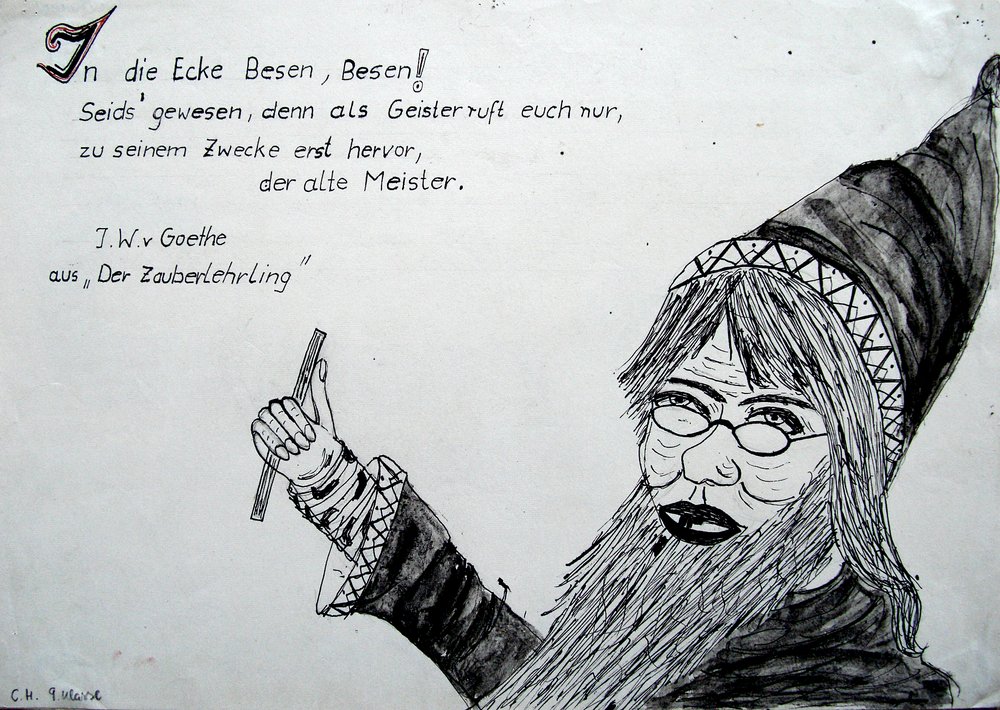 In die Ecke Besen, Besen!
Seids' gewesen, denn als Geister ruft euch nur,
zu seinem Zwecke erst hervor,
der alte Meister.
J. W. v Goethe
aus „Der Zauberlehrling"
C. H. 9. Klasse